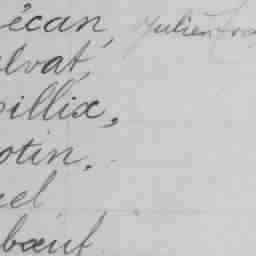 écan, Julien
lvat,
illix,
otin.
el
bœuf